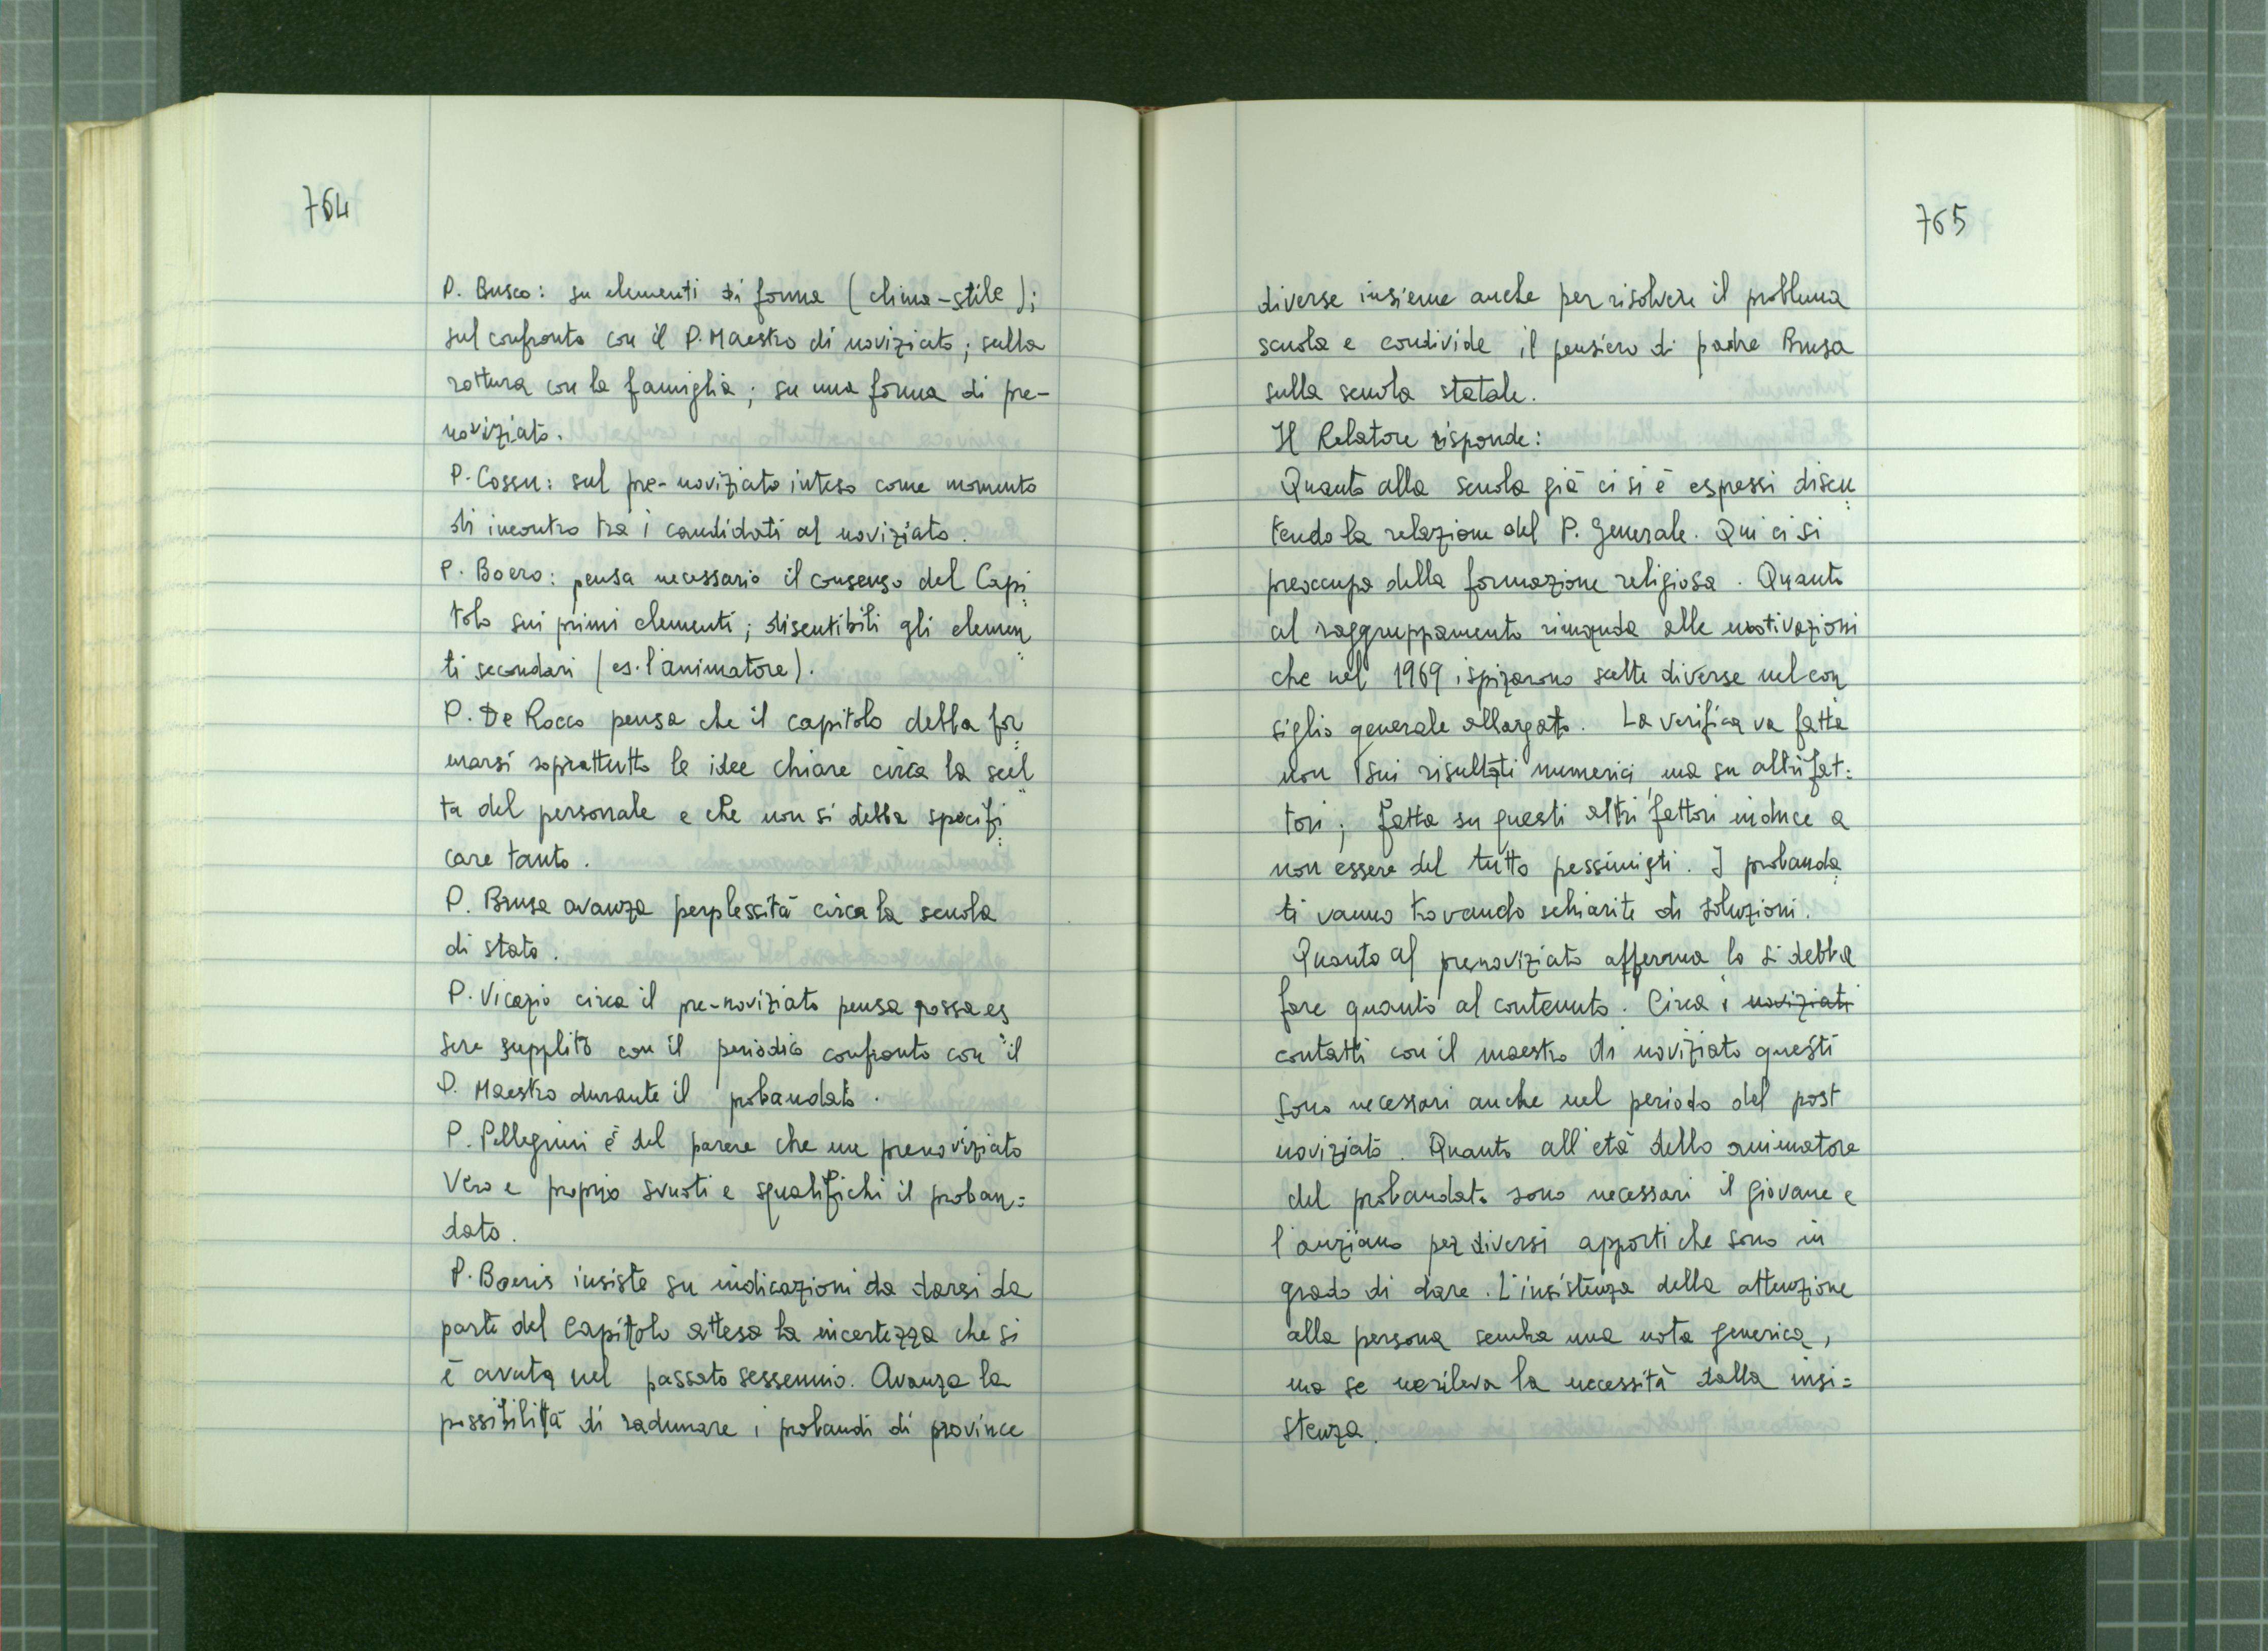 764
P. Busco: su elementi di forma (clima-stile);
sul confronto con il P. Maestro di noviziato; sulla
rottura con la famiglia; su una forma di pre-
noviziato.
P. Cossu: sul pre-noviziato inteso come momento
di incontro tra i candidati al noviziato.
P. Boero: pensa necessario il consenso del Capi
tolo sui primi elementi; discutibili gli elemen
ti secondari (es. l'animatore).
P. De Rocco pensa che il capitolo debba for
marsi soprattutto le idee chiare circa la scel
ta del personale e che non si debba specifi
care tanto.
P. Brusa avanza perplessità circa la scuola
di stato.
P. Vicario circa il pre-noviziato pensa possa es
sere supplito con il periodico confronto con il
P. Maestro durante il probandato.
P. Pellegrini è del parere che un prenoviziato
Vero e proprio svuoti e squalifichi il proban=
dato.
P. Boeris insiste su indicazioni da darsi da
parte del Capitolo attesa la incertezza che si
è avuta nel passato sessennio. Avanza la
possibilità di radunare i probandi di province
765
diverse insieme anche per risolvere il problema
scuola e condivide il pensiero di padre Brusa
sulla scuola statale.
Il Relatore risponde:
Quanto alla scuola già ci si è espressi discu
tendo la relazione del P. Generale. Qui ci si
preoccupa della formazione religiosa. Quanto
al raggruppamento rimanda alle motivazioni
che nel 1969 ispirarono scelte diverse nel con
siglio generale allargato. La verifica va fatta
non sui risultati numerici ma su altri fat=
tori; fatta su questi altri fattori induce a
non essere del tutto pessimisti. I probanda
ti vanno trovando schiarite di soluzioni.
Quanto al prenoviziato afferma lo si debba
fare quanto al contenuto. Circa i noviziati
contatti con il maestro di noviziato questi
sono necessari anche nel periodo del post
noviziato. Quanto all'età dello animatore
del probandato sono necessari il giovane e
l'anziano per diversi apporti che sono in
grado di dare. L'insistenza della attenzione
alla persona sembra una nota generica,
ma se ne rileva la necessità dalla insi=
stenza.